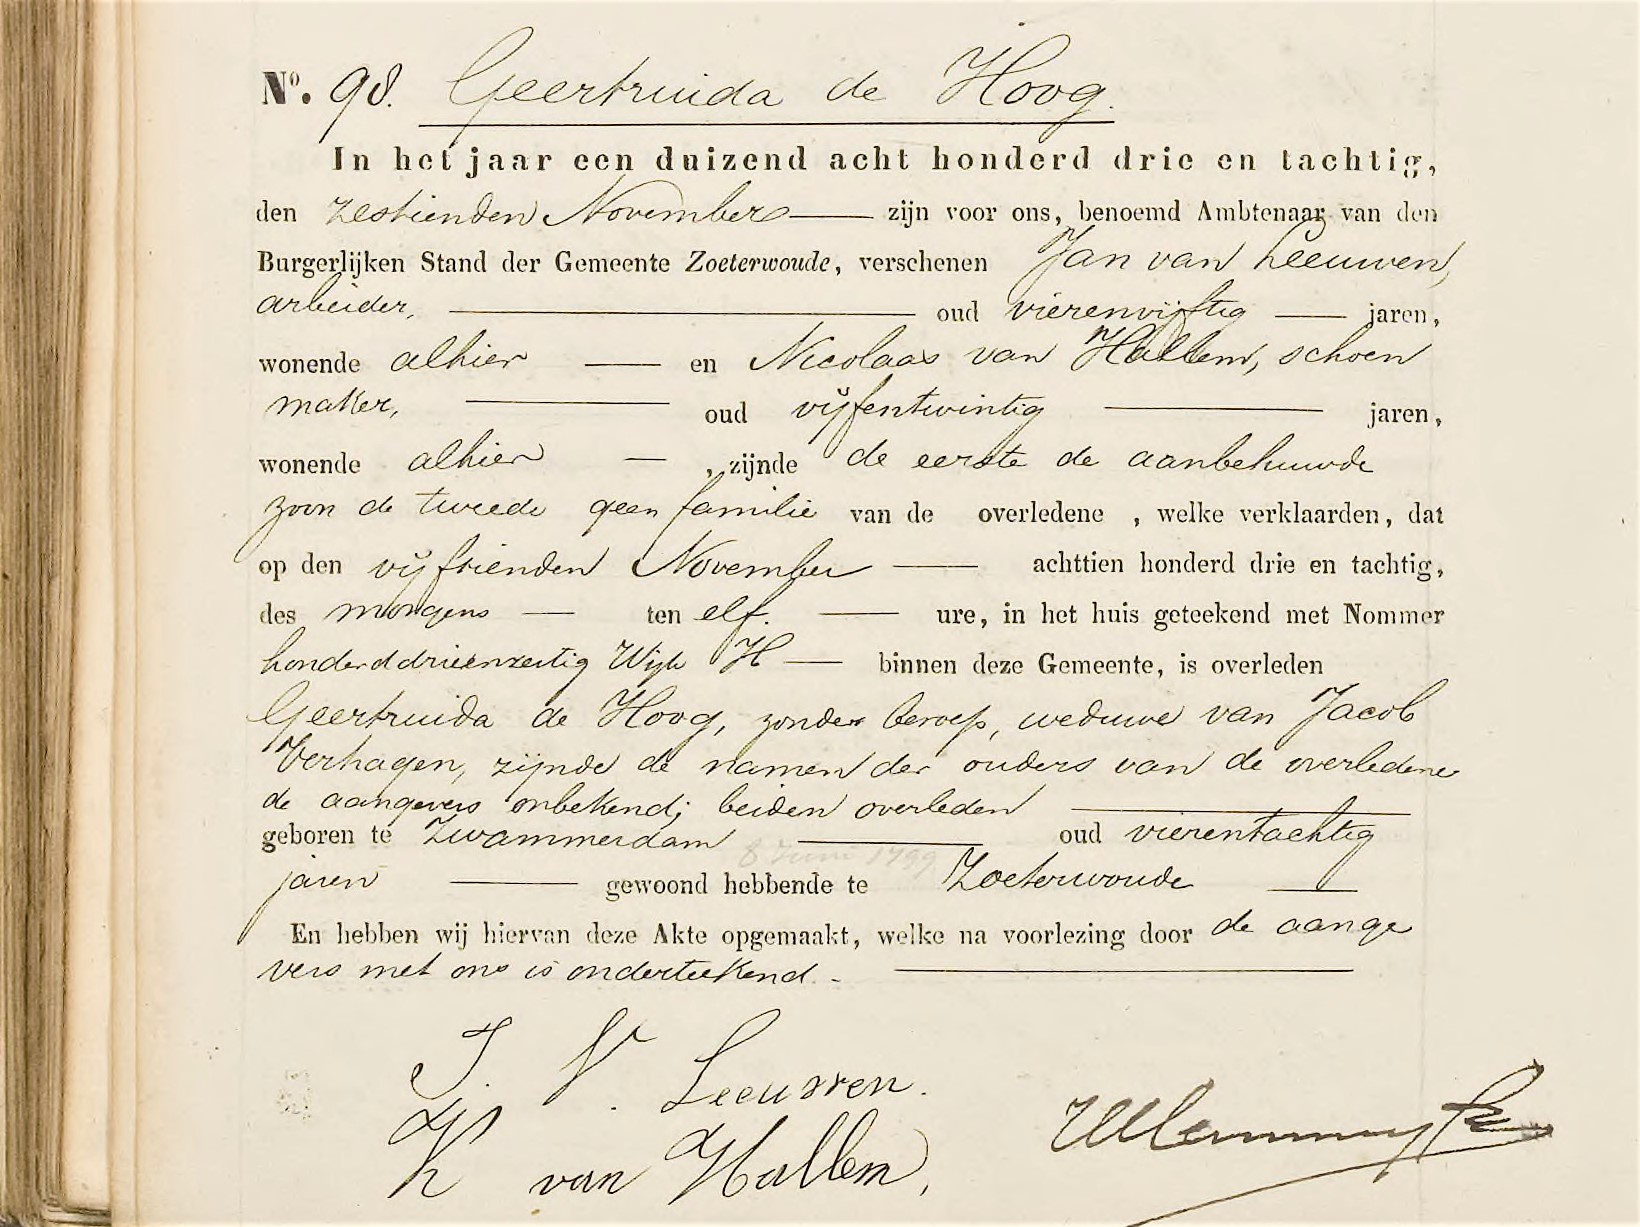 No. 98. Geertruida de Hoog.
In het jaar een duizend acht honderd drie en tachtig,
den zestienden November zijn voor ons, benoemd Ambtenaar van den
Burgerlijken Stand der Gemeente Zoeterwoude, verschenen Jan van Leeuwen,
arbeider, oud vierenvijftig jaren,
wonende alhier en Nicolaas van Hallem, schoen
maker, oud vijfentwintig jaren,
wonende alhier , zijnde de eerste de aanbehuwde
zoon de tweede geen familie van de overledene , welke verklaarden, dat
op den vijftienden November achttien honderd drie en tachtig,
des morgens ten elf. ure, in het huis geteekend met Nommer
honderd drieenzestig Wijk H binnen deze Gemeente, is overleden
Geertruida de Hoog, zonder beroep, weduwe van Jacob
Verhagen, zijnde de namen der ouders van de overledene
de aangevers onbekend; beiden overleden
geboren te Zwammerdam oud vierentachtig
8 Juni 1799
jaren gewoond hebbende te Zoeterwoude
En hebben wij hiervan deze Akte opgemaakt, welke na voorlezing door de aange
vers met ons is onderteekend.
J. V. Leeuwen.
van Hallem,